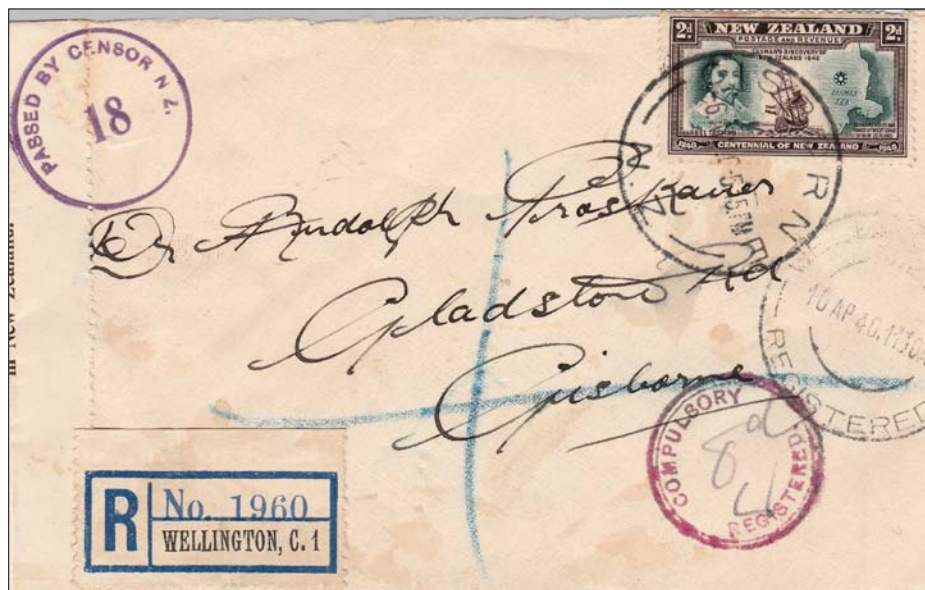 PASSED BY CENSOR N.Z.
18
2d NEW ZEALAND 2d
POSTAGE AND REVENUE
TASMAN'S DISCOVERY OF
NEW ZEALAND 1642
TASMAN
SEA
ABEL TASMAN
1840 CENTENNIAL OF NEW ZEALAND 1940
N.Z
Dr Rudolph Proskauer
Gladston Rd
Gisborne
in New Zealand.
10 AP 40.1130
REGISTERED
COMPULSORY
8d
REGISTERED
R No. 1960
WELLINGTON, C. 1